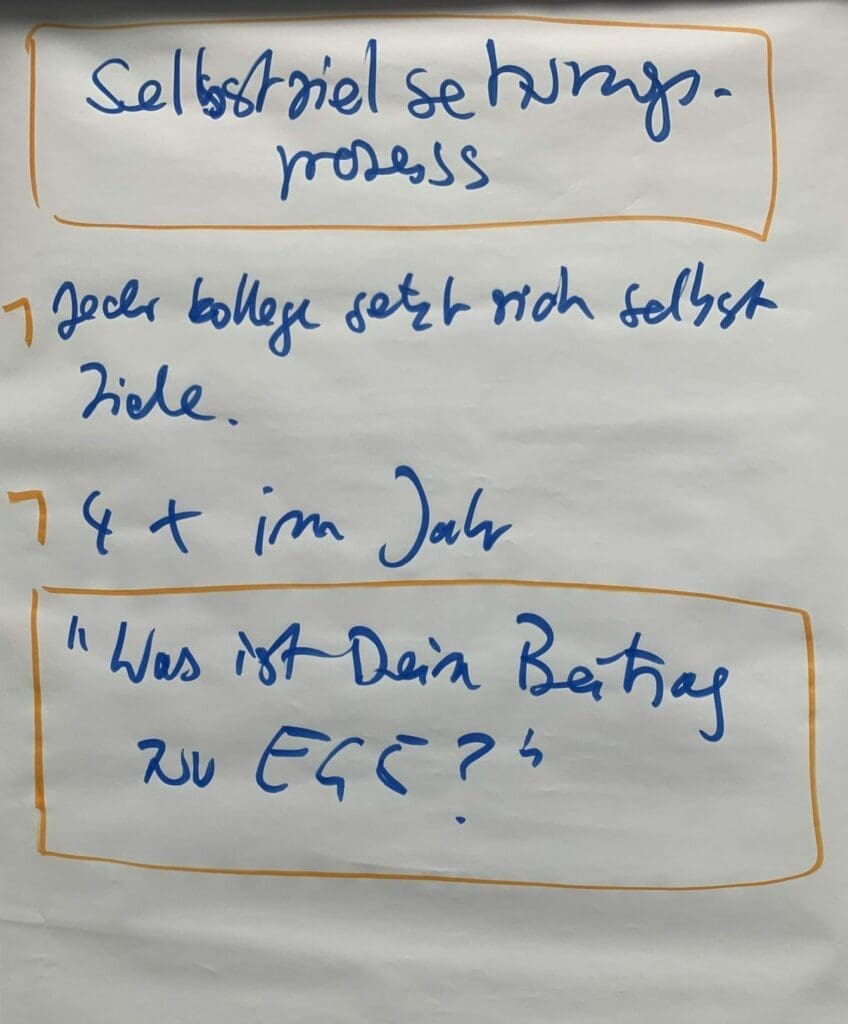 Selbstzielsetzungs-
prozess
Jeder Kollege setzt sich selbst
Ziele.
4 x im Jahr
"Was ist Dein Beitrag
zu EGC?"